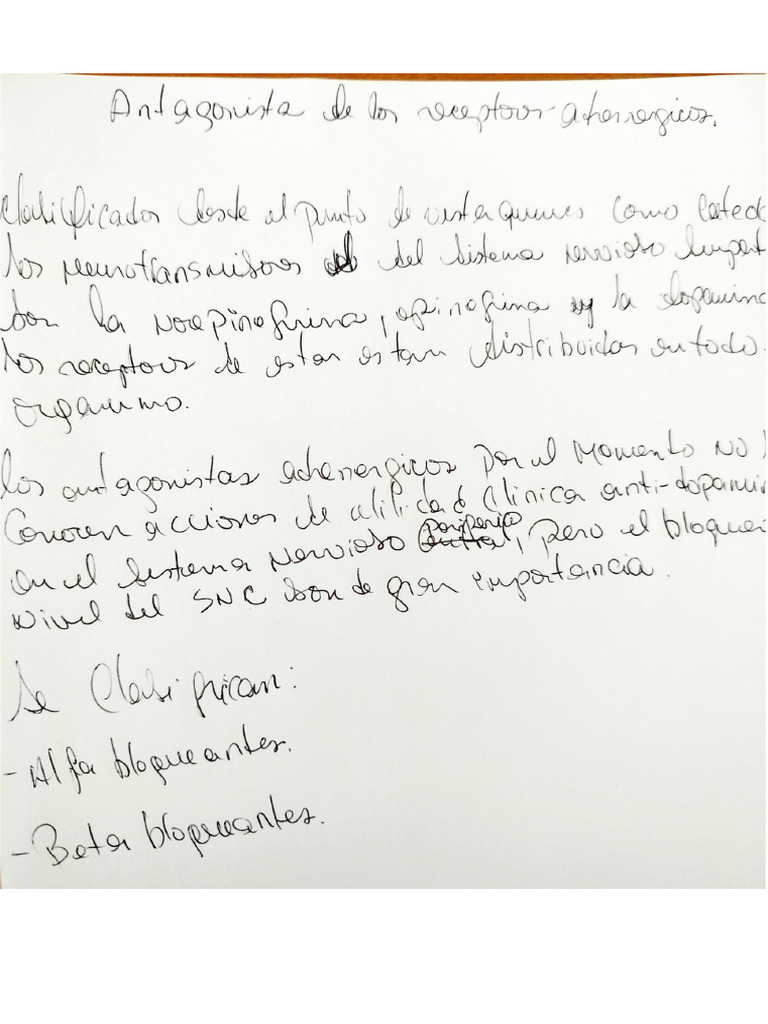 Antagonista de los receptores adrenergicos.
Clasificados desde el punto de vista quimico como Catec
los neurotransmisores del Sistema nervioso simpat
Son la Norepinefrina, epinefrina y la dopamina
los receptores de estar estan distribuidas en todo
organismo.
los antagonistas adrenergicos por el momento NO
Conocen acciones de utilidad Clinica anti-dopamin
en el Sistema Nervioso periferico, pero el bloque
Nivel del SNC son de gran importancia.
Se Clasifican:
- Alfa bloqueantes.
- Beta bloqueantes.